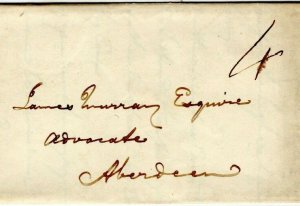 James Murray Esquire
Advocate
Aberdeen